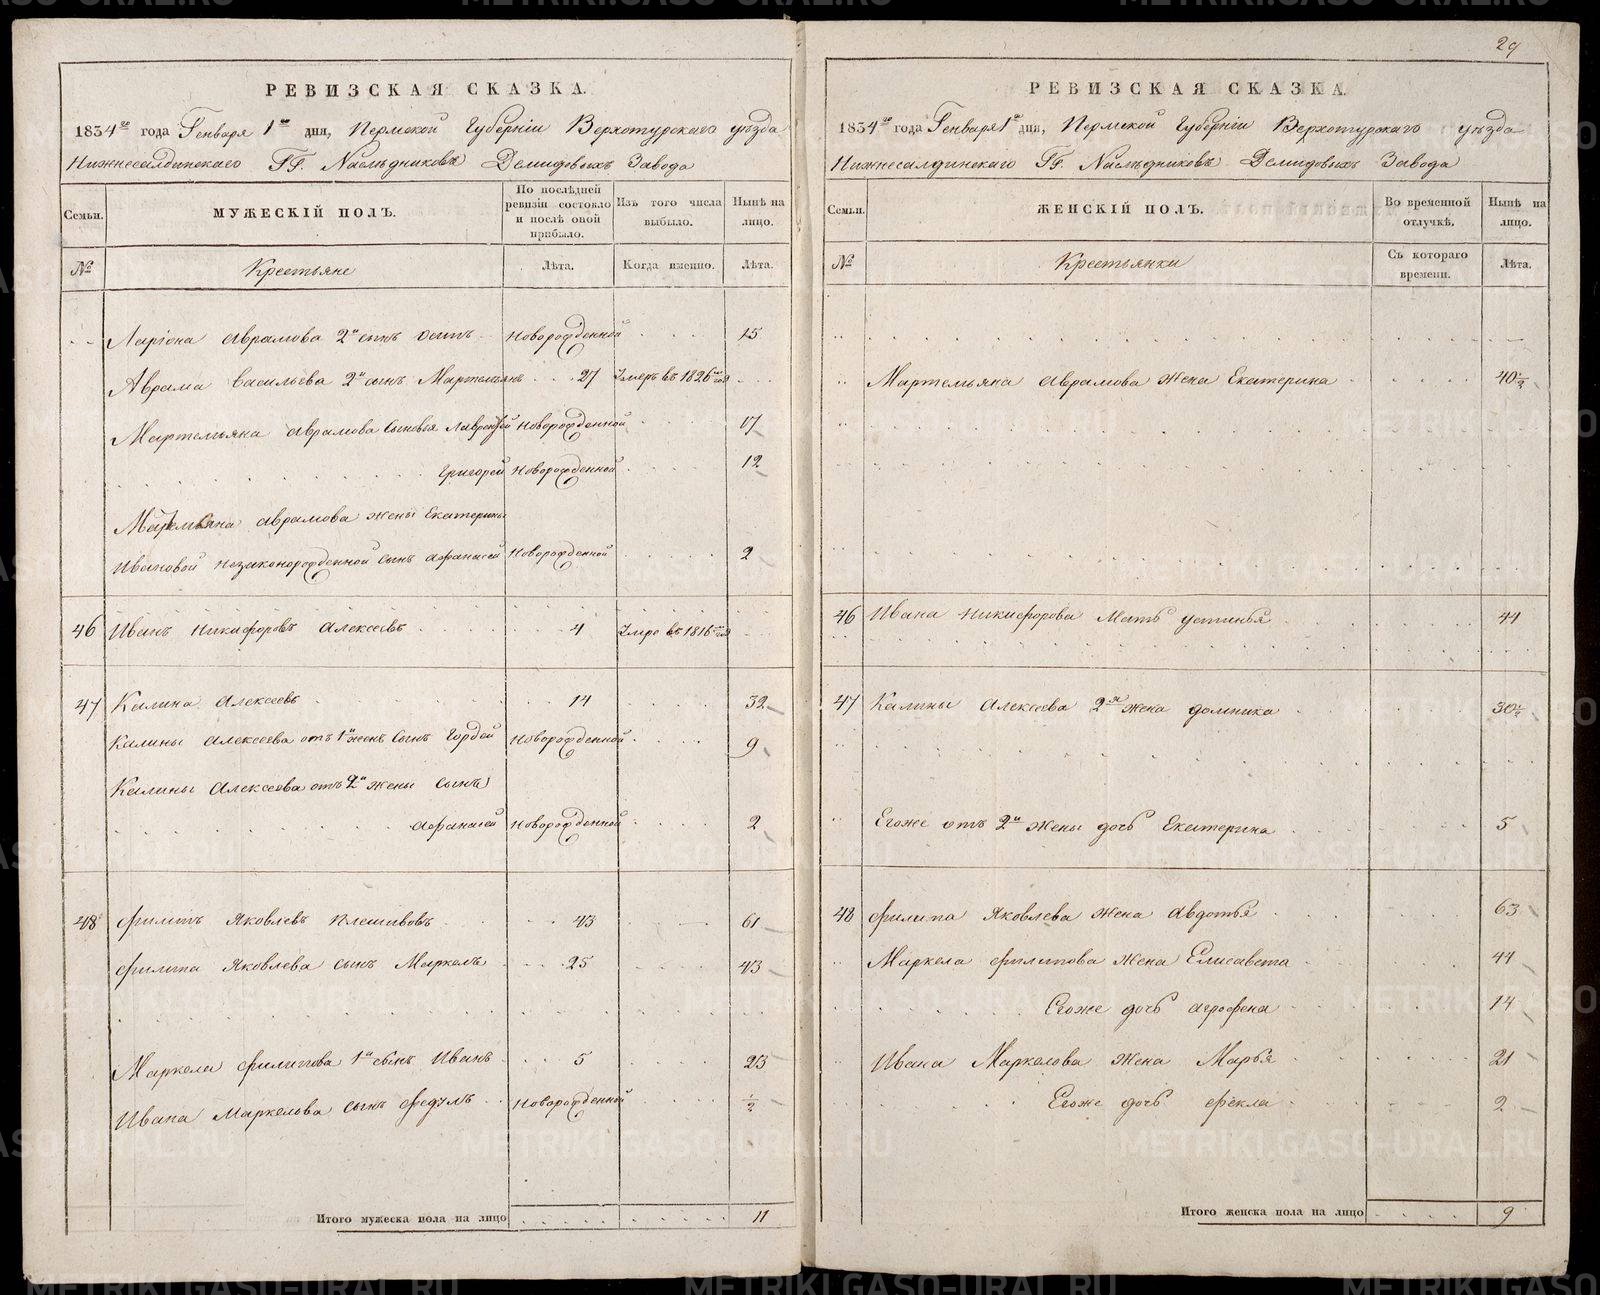 29
РЕВИЗСКАЯ СКАЗКА.
1834го года Генваря 1го дня, Пермской Губерніи Верхотурскаго уѣзда
Нижнесалдинскаго ГГ. Наслѣдниковъ Демидовыхъ Завода
Семьи.
МУЖЕСКІЙ ПОЛЪ.
По послѣдней ревизіи состояло и послѣ оной прибыло.
Изъ того числа выбыло.
Нынѣ на лицо.
№
Крестьяне
Лѣта.
Когда именно.
Лѣта.
Ларіона Аврамова 2й сынъ Новорожденной 15
Аврама Васильева 2й сынъ Мартемьянъ 27 Умеръ въ 1826м годѣ
Мартемьяна Аврамова сыновья Лаврентей Новорожденной 17
Григорей Новорожденной 12
Мартемьяна Аврамова жены Екатерины
Ивановой незаконорожденной сынъ Афанасей Новорожденной 2
46 Иванъ Никифоровъ Алексѣевъ 4 Умре въ 1816м годѣ
47 Калина Алексѣевъ 14 32
Калины Алексѣева отъ 1й жены сынъ Гордей Новорожденной 9
Калины Алексѣева отъ 2й жены сынъ
Афанасей Новорожденной 2
48 Филипъ Яковлевъ Плешивовъ 43 61
Филипа Яковлева сынъ Маркелъ 25 43
Маркела Филипова 1й сынъ Иванъ 5 23
Ивана Маркелова сынъ Федулъ Новорожденной ½
Итого мужеска пола на лицо 11
РЕВИЗСКАЯ СКАЗКА.
1834го года Генваря 1го дня, Пермской Губерніи Верхотурскаго уѣзда
Нижнесалдинскаго ГГ. Наслѣдниковъ Демидовыхъ Завода
Семьи.
ЖЕНСКІЙ ПОЛЪ.
Во временной отлучкѣ.
Нынѣ на лицо.
№
Крестьянки
Съ котораго времени.
Лѣта.
Мартемьяна Аврамова жена Екатерина 40½
46 Ивана Никифорова Мать Устинья 44
47 Калины Алексѣева 2я жена Домника 30½
Егоже отъ 2й жены дочь Екатерина 5
48 Филипа Яковлева жена Авдотья 63
Маркела Филипова жена Елисавета 44
Егоже дочь Агрофена 14
Ивана Маркелова жена Марья 21
Егоже дочь Фекла 2
Итого женска пола на лицо 9
METRIKI.GASO-URAL.RU